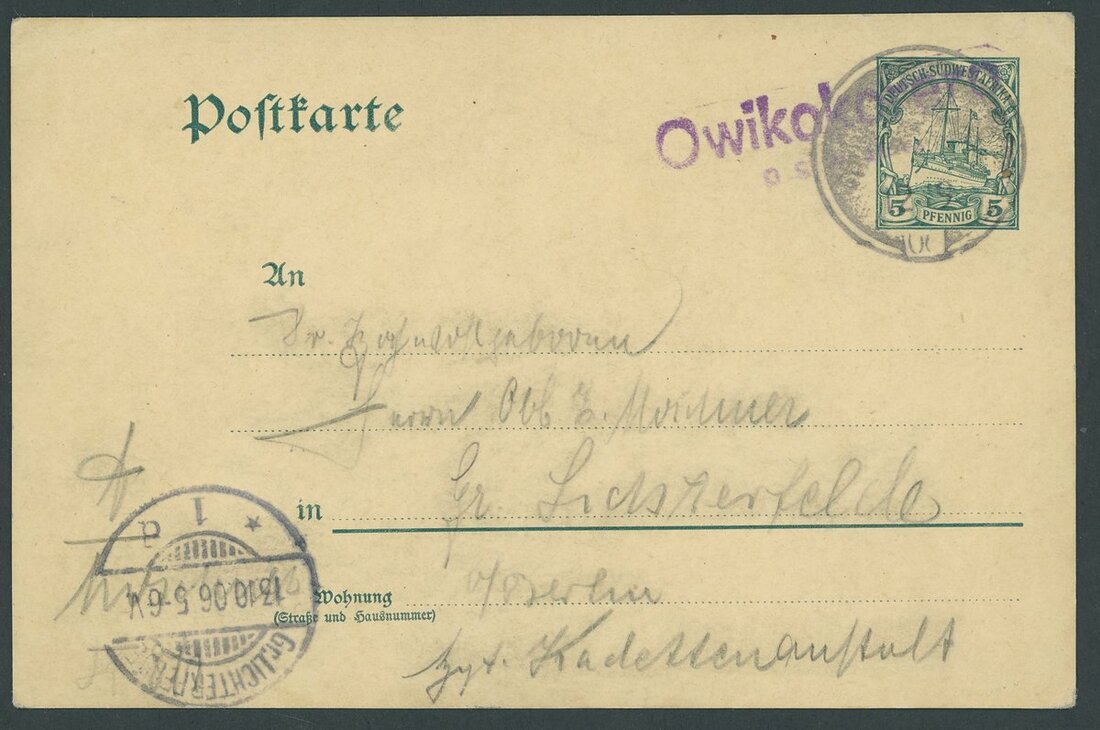 Postkarte
Owikoko
DEUTSCH-SÜDWESTAFRIKA
5 PFENNIG 5
An
Sr. Hochwohlgeboren
Herrn Obl
in Gr. Lichterfelde
Wohnung
(Straße und Hausnummer)
b/Berlin
Kadettenanstalt
1 a
13.10.06.5-6V.
Gr. LICHTERFELDE